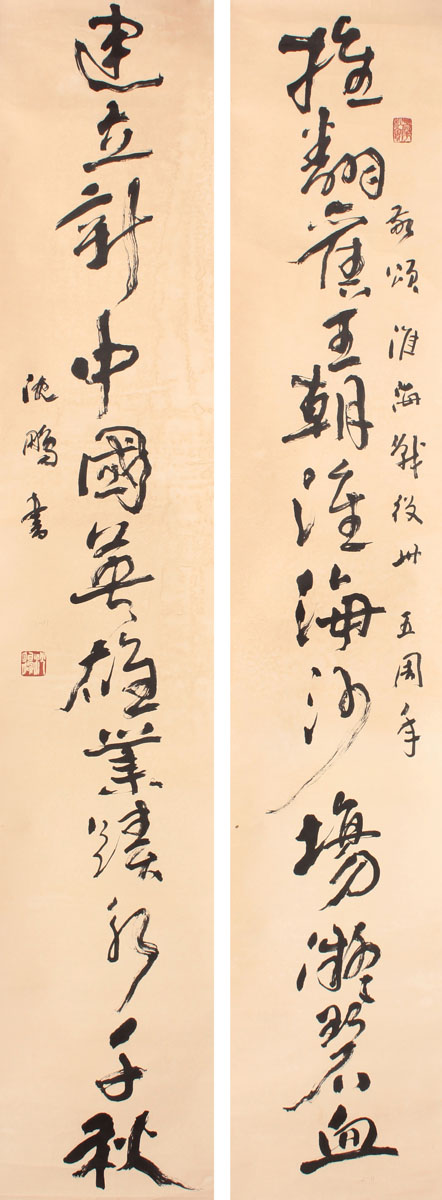 敬頌淮海戰役卅五周年
推翻舊王朝淮海沙場凝碧血
建立新中國英雄業績永千秋
沈鵬書